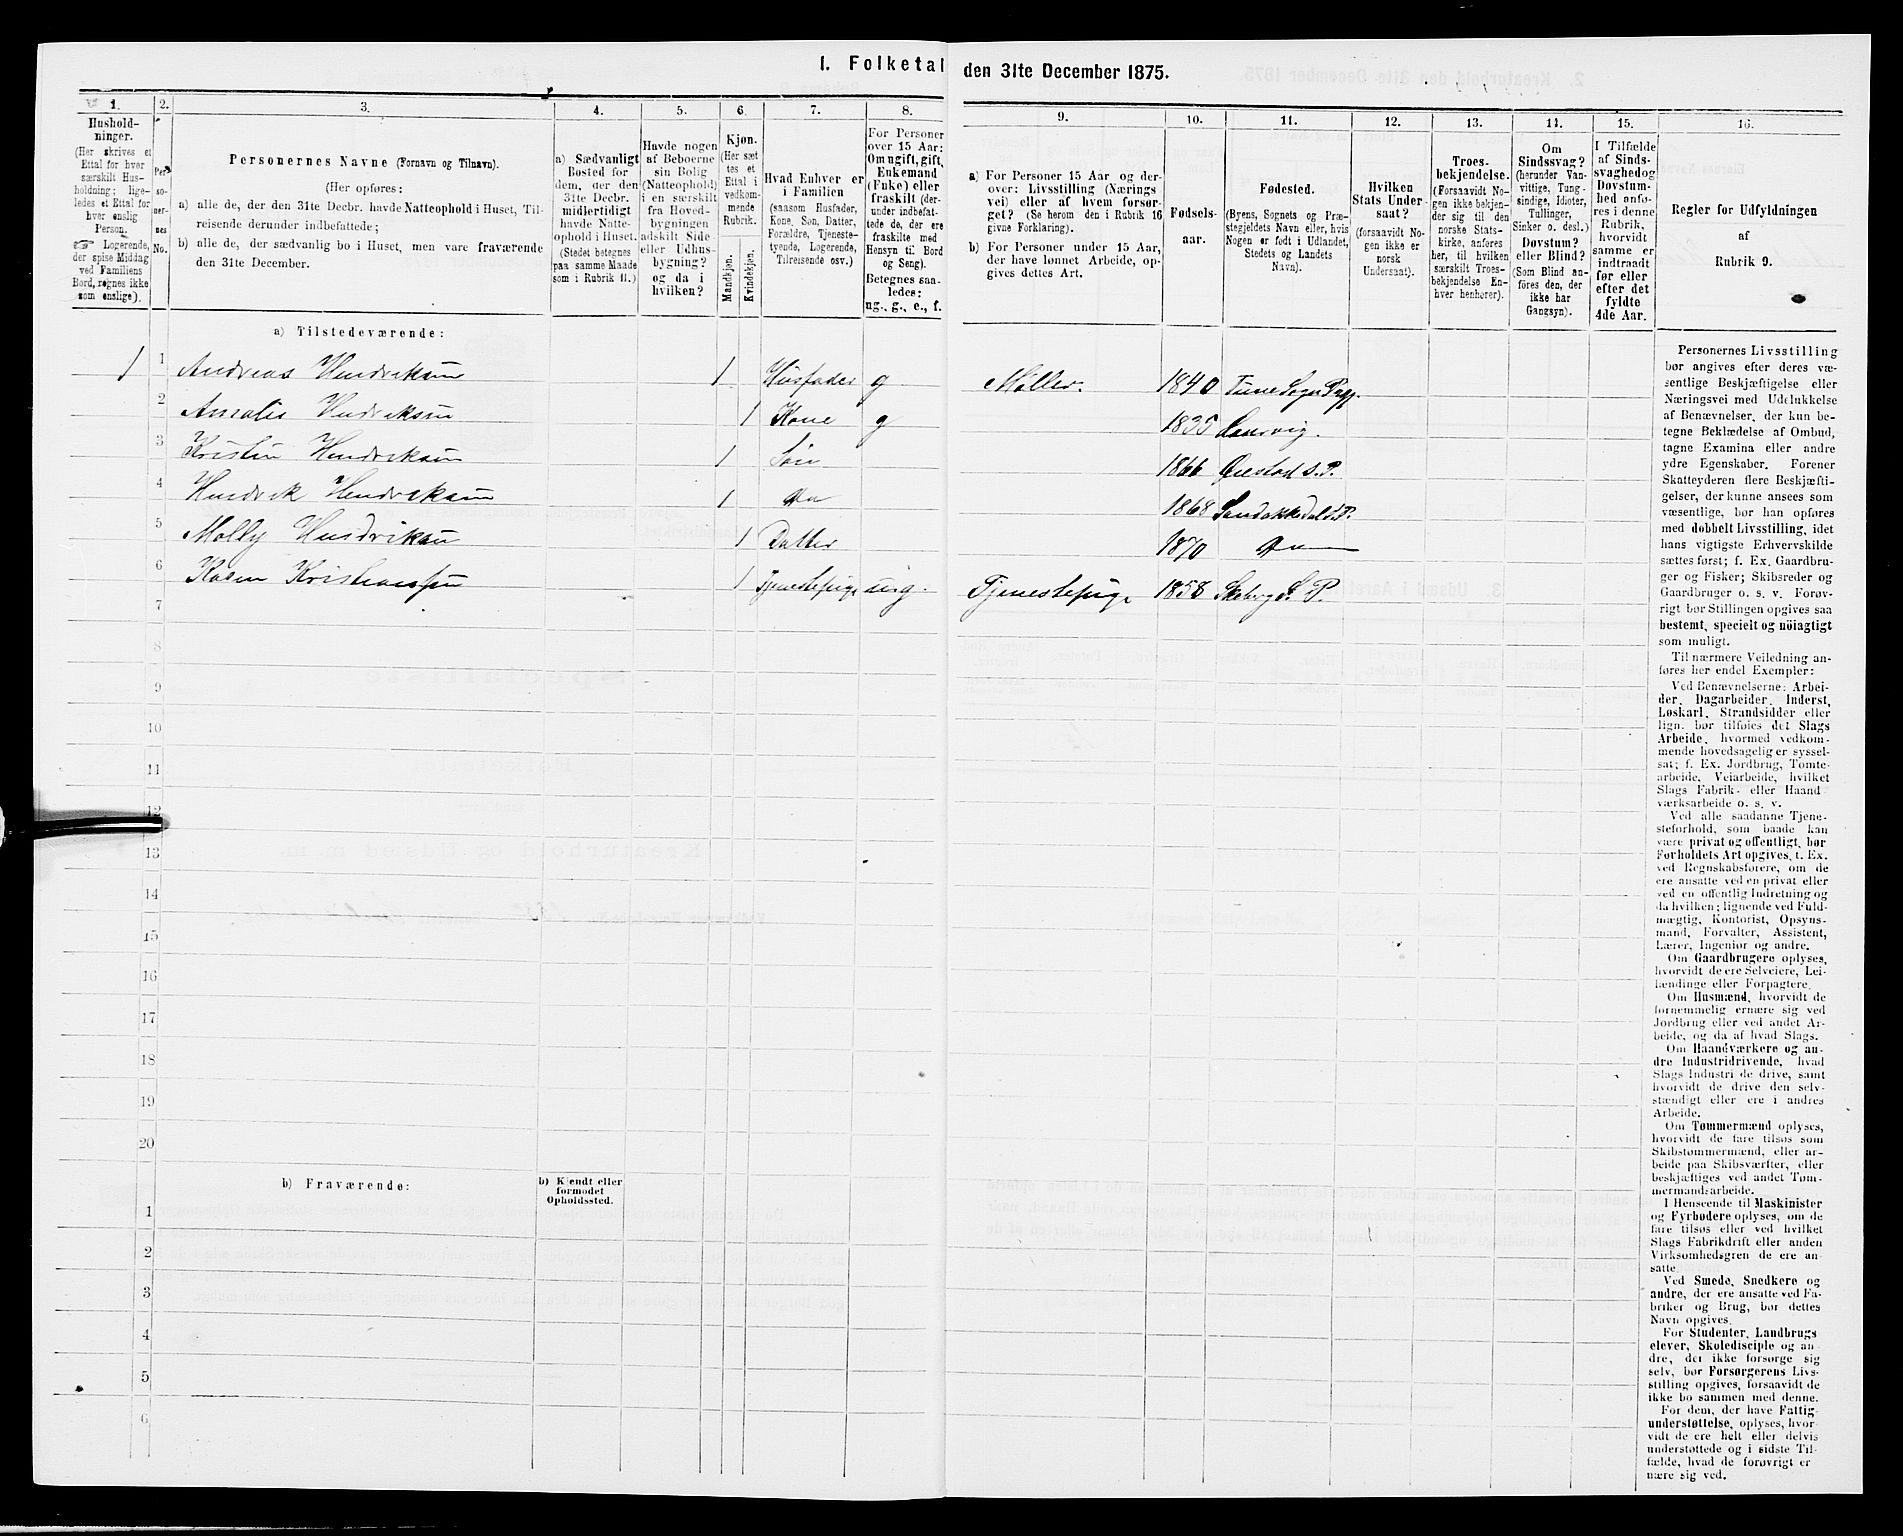 I. Folketal den 31te December 1875.
1. 2. 3. 4. 5. 6. 7. 8. 9. 10. 11. 12. 13. 14. 15. 16.
Hushold-
ninger.
(Her skrives et
Ettal for hver
særskilt Hus-
holdning; lige-
ledes et Ettal for
hver enslig
Person.
☞ Logerende,
der spise Middag
ved Familiens
Bord, regnes ikke
som enslige).
Per-
so-
ner-
nes
No.
Personernes Navne (Fornavn og Tilnavn).
(Her opføres:
a) alle de, der den 31te Decbr. havde Natteophold i Huset, Til-
reisende derunder indbefattede;
b) alle de, der sædvanlig bo i Huset, men vare fraværende
den 31te December.
a) Sædvanligt
Bosted for
dem, der den
31te Decbr.
midlertidigt
havde Natte-
ophold i Huset.
(Stedet betegnes
paa samme Maade
som i Rubrik 11.)
Havde nogen
af Beboerne
sin Bolig
(Natteophold)
i en særskilt
fra Hoved-
bygningen
adskilt Side-
eller Udhus-
bygning?
og da i
hvilken?
Kjøn.
(Her sæt-
tes et
Ettal i
vedkom-
mende
Rubrik.
Mandkjøn.
Kvindekjøn.
Hvad Enhver er
i Familien
(saasom Husfader,
Kone, Søn, Datter,
Forældre, Tjeneste-
tyende, Logerende,
Tilreisende osv.)
For Personer
over 15 Aar:
Om ugift, gift,
Enkemand
(Enke) eller
fraskilt (der-
under indbefat-
tede de, der ere
fraskilte med
Hensyn til Bord
og Seng).
Betegnes saa-
ledes:
ug., g., e., f.
a) For Personer 15 Aar og der-
over: Livsstilling (Nærings-
vei) eller af hvem forsør-
get? (Se herom den i Rubrik 16
givne Forklaring).
b) For Personer under 15 Aar,
der have lønnet Arbeide, op-
gives dettes Art.
Fødsels-
aar.
Fødested.
(Byens, Sognets og Præ-
stegjeldets Navn eller, hvis
Nogen er født i Udlandet,
Stedets og Landets
Navn).
Hvilken
Stats Under-
saat?
(forsaavidt No-
gen ikke er
norsk
Undersaat).
Troes-
bekjendelse.
(Forsaavidt No-
gen ikke bekjen-
der sig til den
norske Stats-
kirke, anføres
her, til hvilken
særskilt Troes-
bekjendelse En-
hver henhører).
Om
Sindssvag?
(herunder Van-
vittige, Tung-
sindige, Idioter,
Tullinger,
Sinker o. desl.)
Døvstum?
eller Blind?
(Som Blind an-
føres den, der
ikke har
Gangsyn).
I Tilfælde
af Sinds-
svaghed og
Døvstum-
hed anfø-
res i denne
Rubrik,
hvorvidt
samme er
indtraadt
før eller
efter det
fyldte
4de Aar.
Regler for Udfyldningen
af
Rubrik 9.
a) Tilstedeværende:
1 1 Andreas Hendriksen 1 Husfader g Møller. 1840 Tune Sogn Præg.
2 Amalie Hendriksen 1 Kone g 1835 Laurvig.
3 Kristin Hendriksen 1 Søn 1866 Øiestad S. P.
4 Hendrik Hendriksen 1 Do 1868 Sandøkkedal S. P.
5 Molly Hendriksen 1 Datter 1870 Do
6 Karen Kristiansen 1 Tjenestepige ug. Tjenestepige 1858 Skeberg S. P.
7
8
9
10
11
12
13
14
15
16
17
18
19
20
b) Fraværende:
b) Kjendt eller
formodet
Opholdssted.
1
2
3
4
5
6
Personernes Livsstilling
bør angives efter deres væ-
sentlige Beskjæftigelse eller
Næringsvei med Udelukkelse
af Benævnelser, der kun be-
tegne Beklædelse af Ombud,
tagne Examina eller andre
ydre Egenskaber. Forener
Skatteyderen flere Beskjæfti-
gelser, der kunne ansees som
væsentlige, bør han opføres
med dobbelt Livsstilling, idet
hans vigtigste Erhvervskilde
sættes først; f. Ex. Gaardbru-
ger og Fisker; Skibsreder og
Gaardbruger o. s. v. Forøv-
rigt bør Stillingen opgives saa
bestemt, specielt og nöiagtigt
som muligt.
Til nærmere Veiledning an-
føres her endel Exempler:
Ved Benævnelserne: Arbei-
der, Dagarbeider, Inderst,
Løskarl, Strandsidder eller
lign. bør tilføies det Slags
Arbeide, hvormed vedkom-
mende hovedsagelig er syssel-
sat; f. Ex. Jordbrug, Tømte-
arbeide, Veiarbeide, hvilket
Slags Fabrik- eller Haand-
værksarbeide o. s. v.
Ved alle saadanne Tjene-
steforhold, som baade kan
være privat og offentligt, bør
Forholdets Art opgives, t. Ex.
ved Regnskabsførere, om de
ere ansatte ved en privat eller
ved en offentlig Indretning og
da hvilken; lignende ved Fuld-
mægtig, Kontorist, Opsyns-
mand, Forvalter, Assistent,
Lærer, Ingeniør og andre.
Om Gaardbrugere oplyses,
hvorvidt de ere Selveiere, Lei-
lændinge eller Forpagtere.
Om Husmænd, hvorvidt de
fornemmelig ernære sig ved
Jordbrug eller ved andet Ar-
beide, og da af hvad Slags.
Om Haandværkere og an-
dre Industridrivende, hvad
Slags Industri de drive, samt
hvorvidt de drive den selv-
stændigt eller ere i andres
Arbeide.
Om Tømmermænd oplyses,
hvorvidt de fare tilsøs som
Skibstømmermænd, eller ar-
beide paa Skibsværfter, eller
beskjæftiges ved andet Tøm-
mermandsarbeide.
I Henseende til Maskinister
og Fyrbødere oplyses, om de
fare tilsøs eller ved hvilket
Slags Fabrikdrift eller anden
Virksomhedsgren de ere an-
satte.
Ved Smede, Snedkere og
andre, der ere ansatte ved Fa-
briker og Brug, bør dettes
Navn opgives.
For Studenter, Landbrugs-
elever, Skoledisciple og an-
dre, der ikke forsørge sig
selv, bør Forsørgerens Livs-
stilling opgives, forsaavidt de
ikke bo sammen med denne.
For dem, der have Fattig-
understøttelse, oplyses, hvor-
vidt de ere helt eller delvis
understøttede og i sidste Til-
fælde, hvad de forøvrigt er-
nære sig ved.